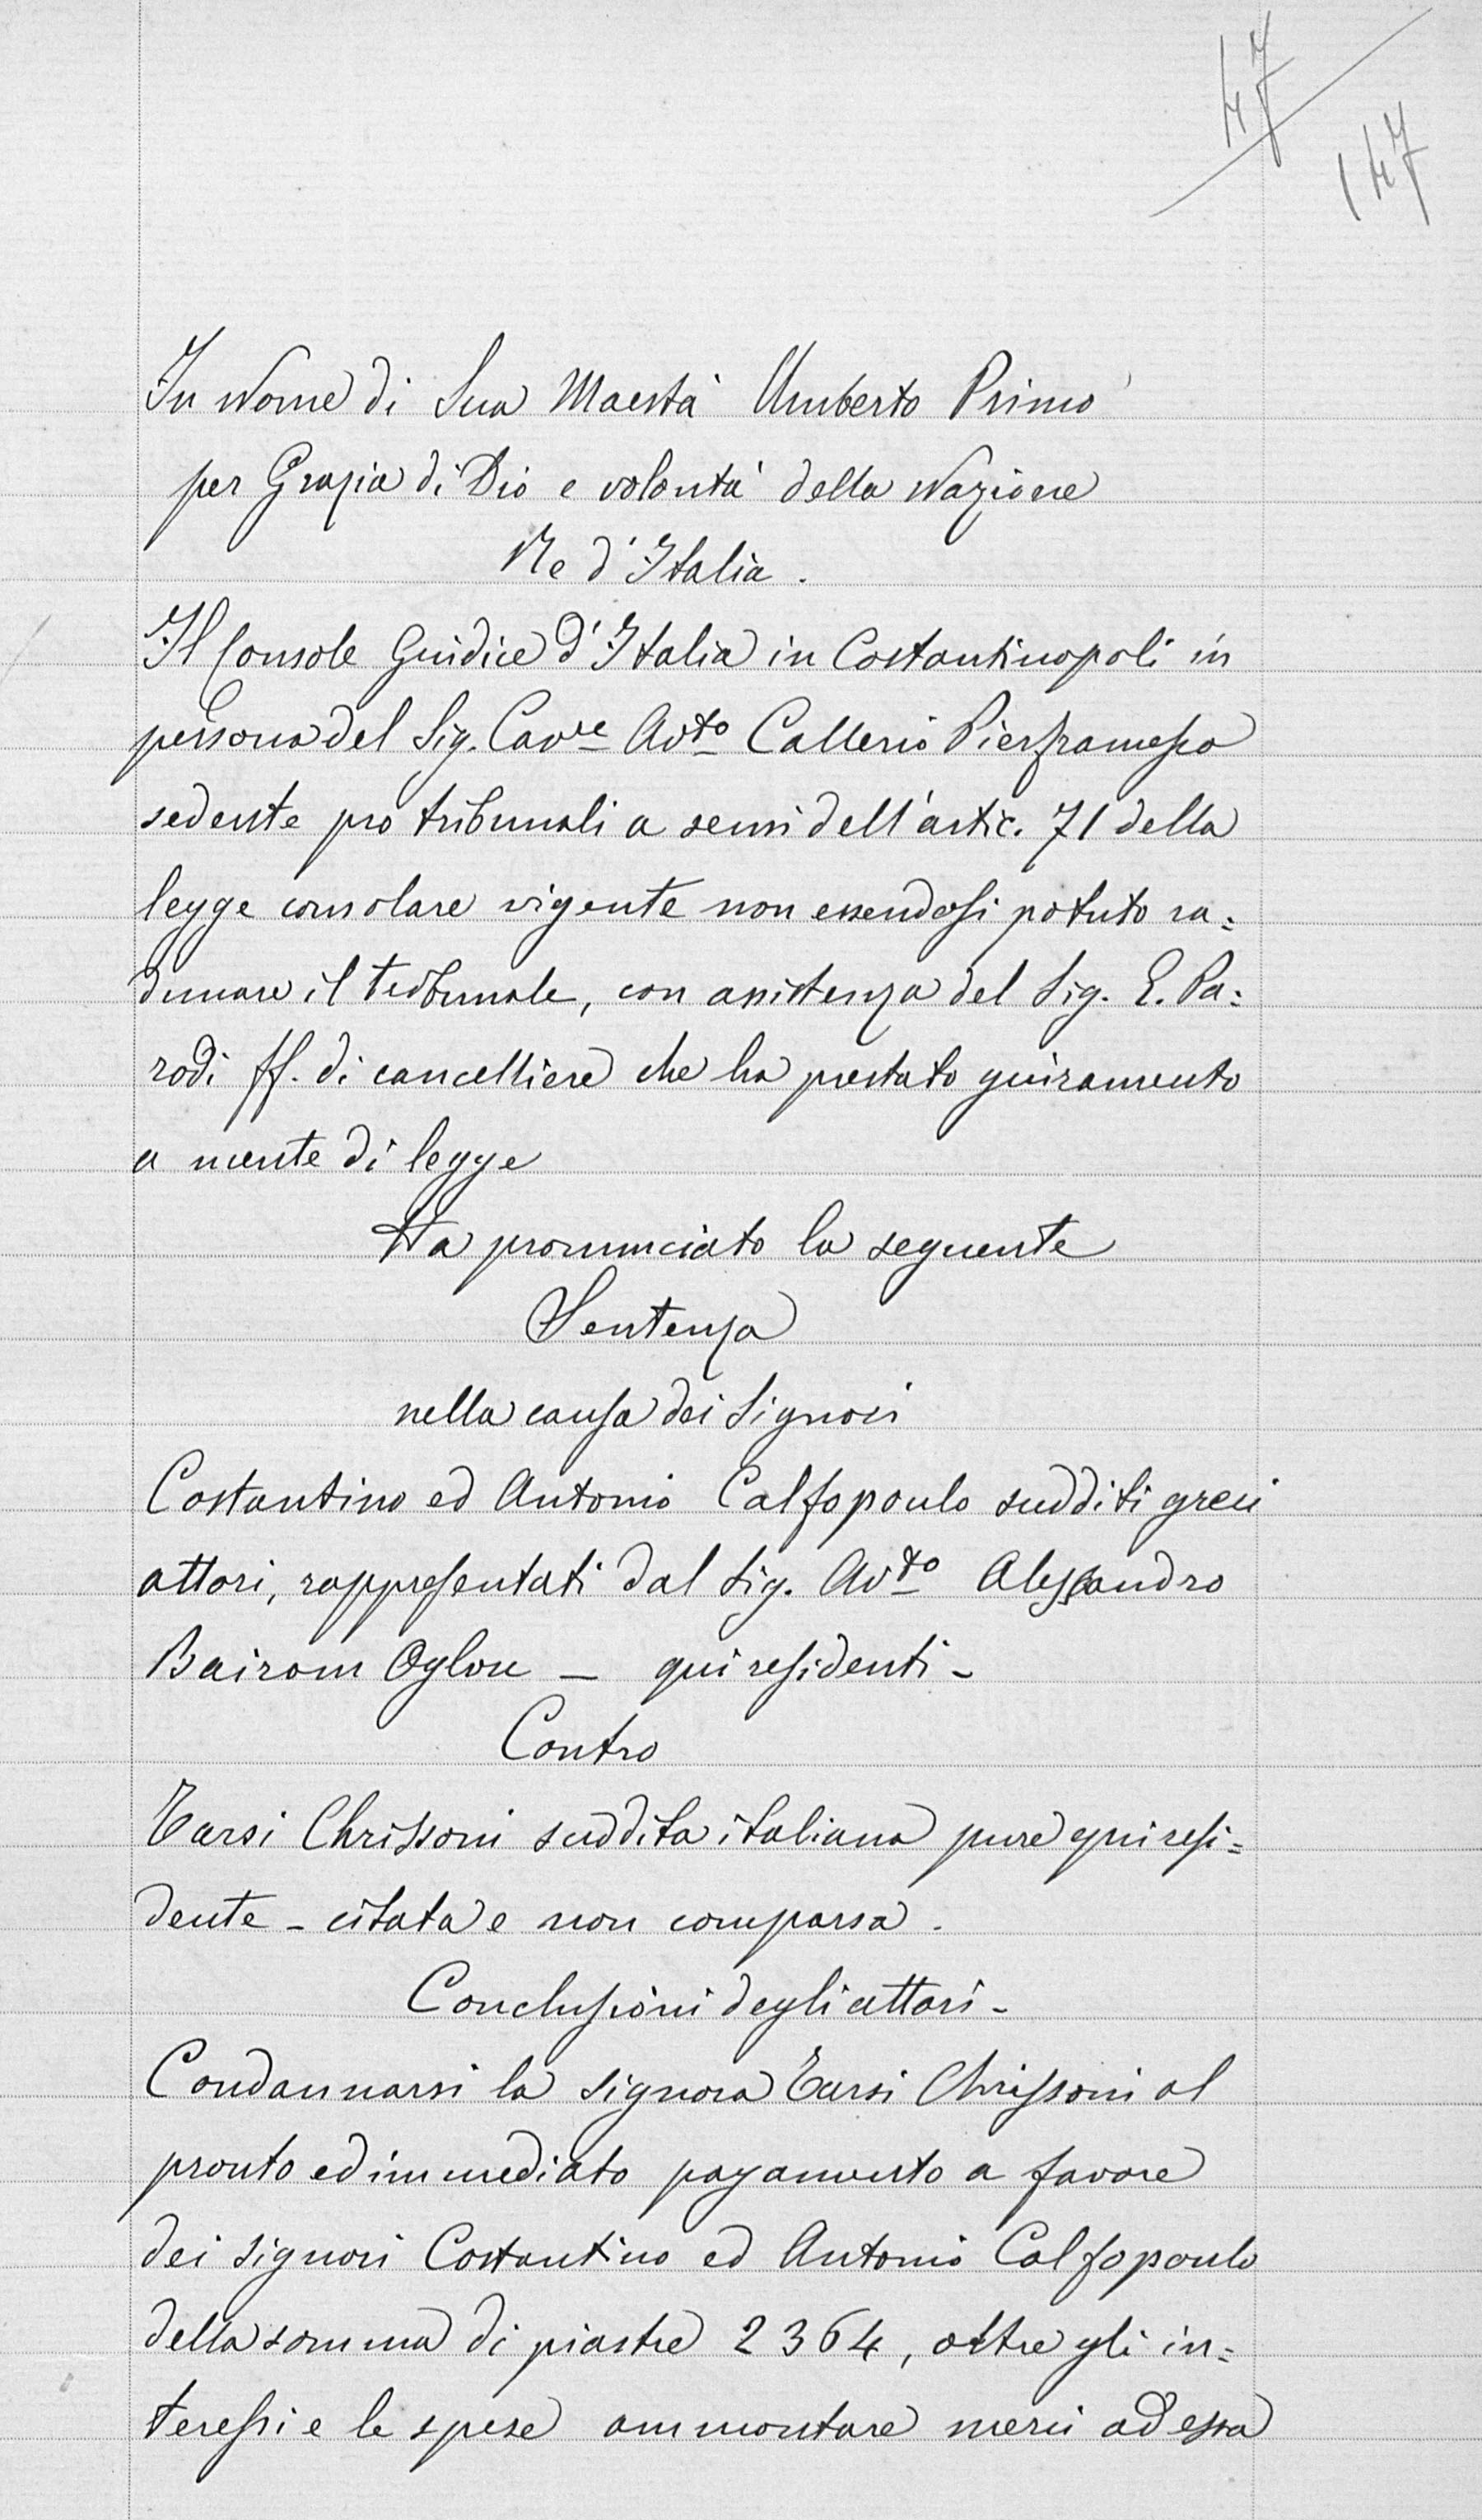 47
147
In Nome di Sua Maestà Umberto Primo
per Grazia di Dio e volontà della Nazione
Re d'Italia.
Il Console Giudice d'Italia in Costantinopoli in
persona del Sig. Cavre Avto Callerio Pierfrancesco
sedente pro tribunali a sensi dell'artic. 71 della
legge consolare vigente non essendosi potuto ra=
dunare il tribunale, con assistenza del Sig. E. Pa=
rodi ff. di cancelliere che ha prestato giuramento
a mente di legge
Ha pronunciato la seguente
Sentenza
nella causa dei Signori
Costantino ed Antonio Calfopoulo sudditi greci
attori, rappresentati dal Sig. Avto Alessandro
Bairam Oglou – qui residenti –
Contro
Tarsi Chrissoni suddita italiana pure qui resi=
dente – citata e non comparsa.
Conclusioni degli attori –
Condannarsi la signora Tarsi Chrissoni al
pronto ed immediato pagamento a favore
dei signori Costantino ed Antonio Calfopoulo
della somma di piastre 2364, oltre gli in=
teressi e le spese ammontare merci ad essa